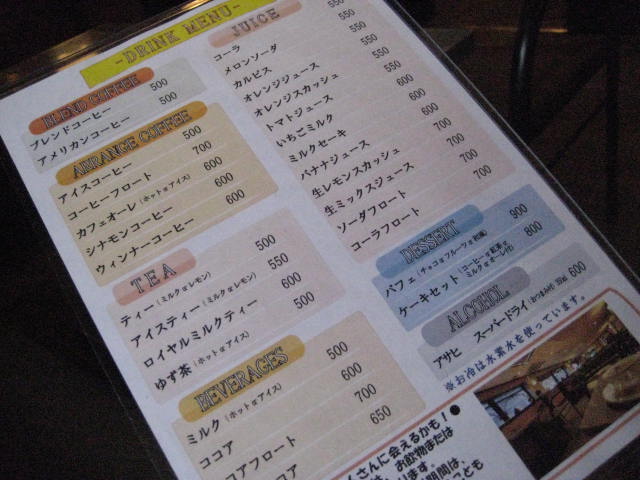 -DRINK MENU-
BLEND COFFEE
ブレンドコーヒー 500
アメリカンコーヒー 500
ARRANGE COFFEE
アイスコーヒー 500
コーヒーフロート 700
カフェオーレ(ホットorアイス) 600
シナモンコーヒー 600
ウィンナーコーヒー 600
TEA
ティー(ミルクorレモン) 500
アイスティー(ミルクorレモン) 550
ロイヤルミルクティー 600
ゆず茶(ホットorアイス) 500
BEVERAGES
ミルク(ホットorアイス) 500
ココア 600
コアフロート 700
コア 650
JUICE
コーラ 550
メロンソーダ 550
カルピス 550
オレンジジュース 550
オレンジスカッシュ 550
トマトジュース
いちごミルク 600
ミルクセーキ 600
バナナジュース 600
生レモンスカッシュ 700
生ミックスジュース 700
ソーダフロート 700
コーラフロート 700
DESSERT
パフェ(チョコorフルーツor和風) 900
ケーキセット(コーヒーor紅茶orミルクorオーレ付) 800
ALCOHOL
アサヒ スーパードライ(おつまみ付) 600
※お冷は水素水を使っています。
くさんに会えるかも!●
は、お飲物または
ります。
期間は、
ことも